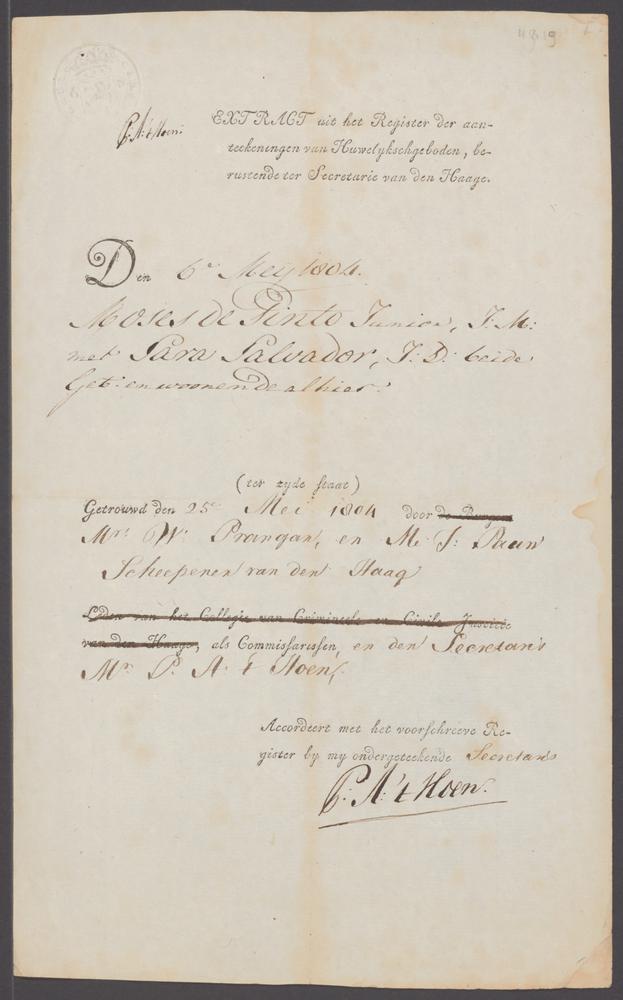 4819
P. A. 't Hoen:
EXTRACT uit het Register der aan-
teekeningen van Huwelykschgeboden, be-
rustende ter Secretarie van den Haage.
Den 6e Meij 1804.
Moses de Pinto Junior, J. M:
met Sara Salvador, J: D: beide
Geb: en woonende alhier.
(ter zyde staat)
Getrouwd den 25e Mei 1804 door
Mrs W: en Mr J:
Scheepenen van den Haag
Leden van het Collegie van Crimineele en Civile Justitie
van den Haage, als Commissarissen, en den Secretaris
Mr P. A. 't Hoen,
Accordeert met het voorschreeve Re-
gister by my ondergeteekende Secretaris
P: A: 't Hoen.